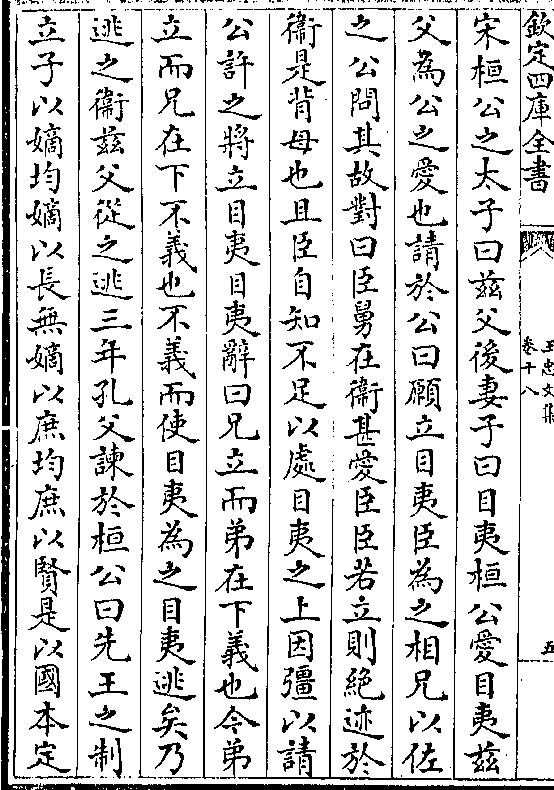 欽定四庫全書
王忠文集
卷十八
五
宋桓公之太子曰兹父後妻子曰目夷桓公愛目夷兹
父為公之愛也請於公曰願立目夷臣為之相兄以佐
之公問其故對曰臣舅在衞甚愛臣臣若立則絶迹於
衞是背母也且臣自知不足以處目夷之上因彊以請
公許之將立目夷目夷辭曰兄立而弟在下義也今弟
立而兄在下不義也不義而使目夷為之目夷逃矣乃
逃之衞兹父從之逃三年孔父諫於桓公曰先王之制
立子以嫡均嫡以長無嫡以庶均庶以賢是以國本定